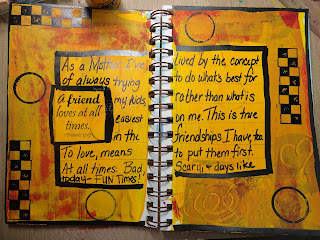 As a Mother I've lived by the concept
of always trying to do what's best for
my kids, rather than what is
easiest on me. This is true
in the friendships I have, too
To love, means to put them first.
At all times. Bad, Scary, + days like
today- FUN Times!
A friend
loves at all
times.